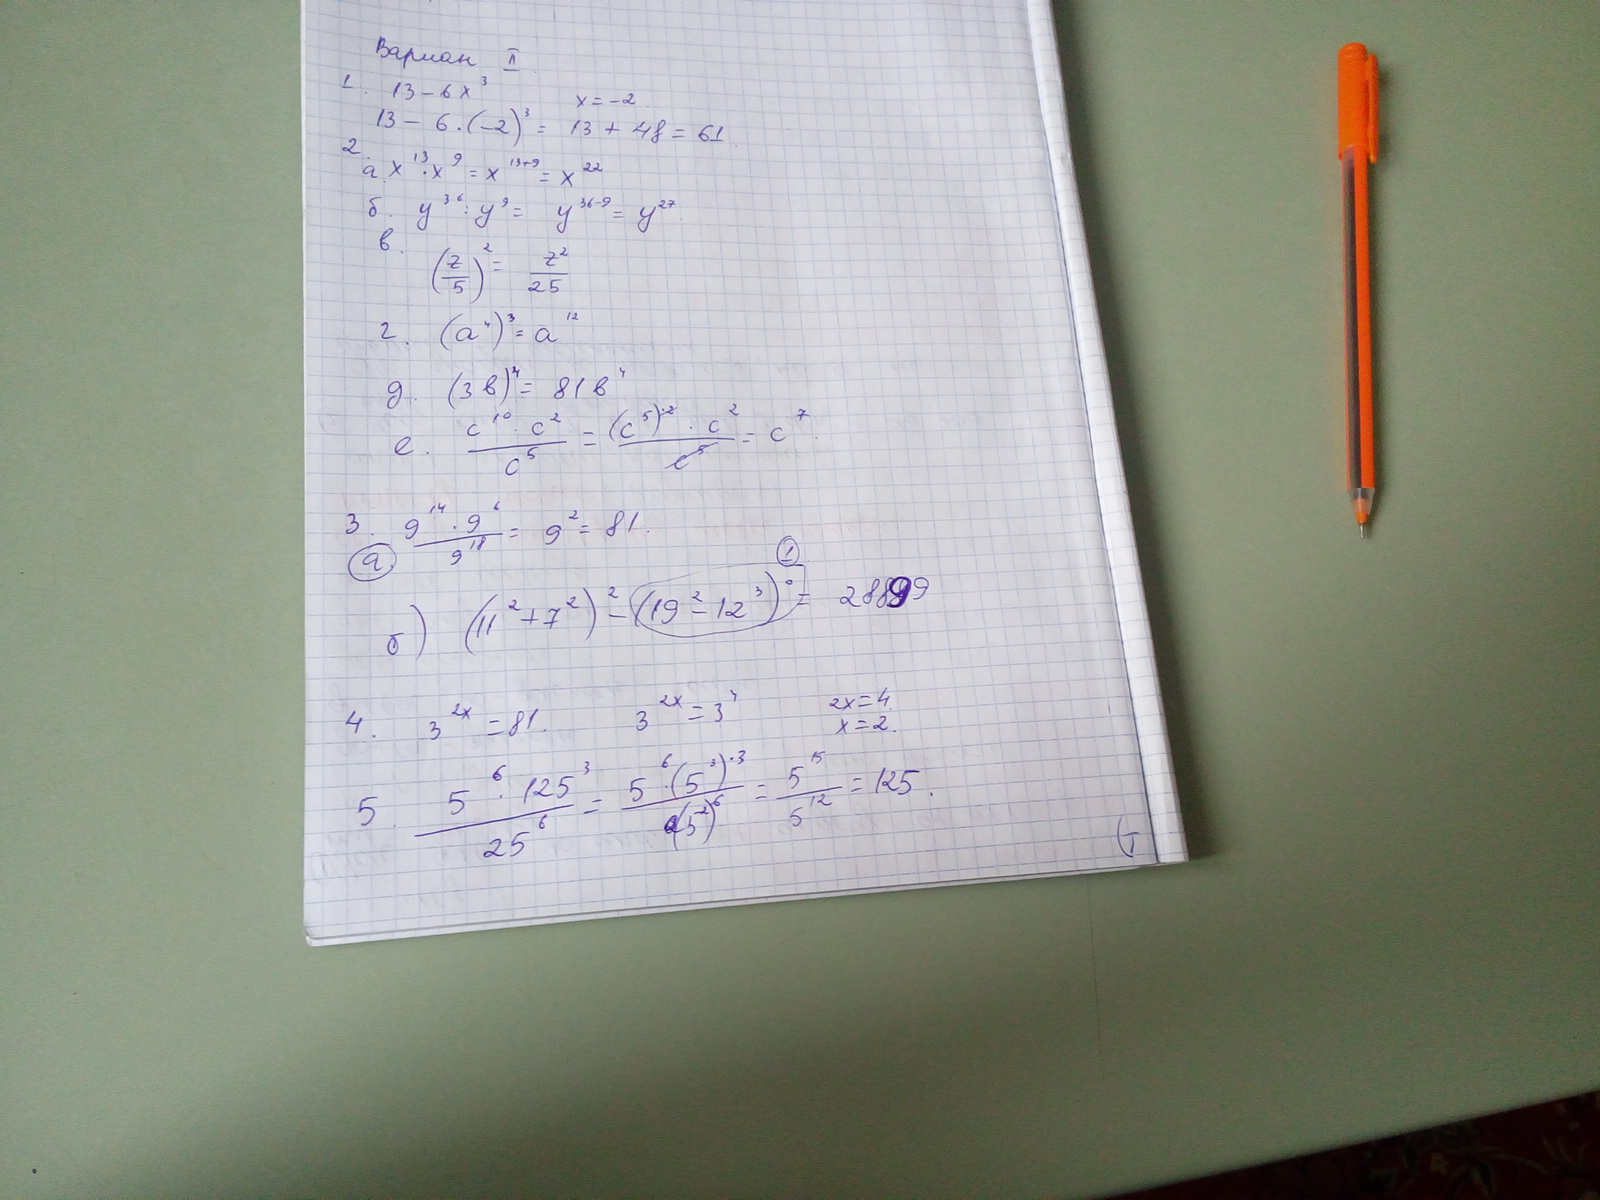 Вариан II
1. 13 - 6x³ x = -2.
13 - 6·(-2)³ = 13 + 48 = 61.
2.
а. x¹³·x⁹ = x¹³⁺⁹ = x²²
б. y³⁶ : y⁹ = y³⁶⁻⁹ = y²⁷.
в. (z/5)² = z²/25
г. (a⁴)³ = a¹²
д. (3в)⁴ = 81в⁴
е. (c¹⁰·c²)/c⁵ = ((c⁵)·²·c²)/c⁵ = c⁷.
3. (9¹⁴·9⁶)/9¹⁸ = 9² = 81.
а
1
б) (11² + 7²)² - (19² - 12³)⁰ = 28899
4. 3²ˣ = 81. 3²ˣ = 3⁴ 2x = 4.
x = 2.
5. (5⁶·125³)/25⁶ = (5⁶·(5³)·³)/(5²)⁶ = 5¹⁵/5¹² = 125.